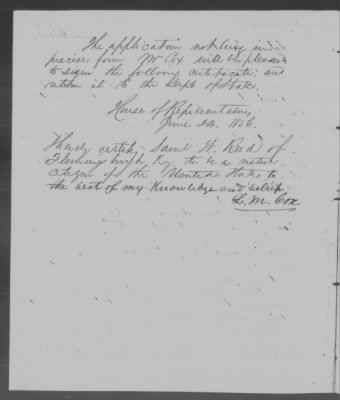 The application not being in
precise form Mr Cox will be pleased
to sign the following certificate; and
return it to the Dept of State.
House of Representatives
June 24. 1856.
I hereby certify, Saml W. Reed of
Flemingsburgh Ky. to be a native
citizen of the United States to
the best of my knowledge and belief.
L. M. Cox